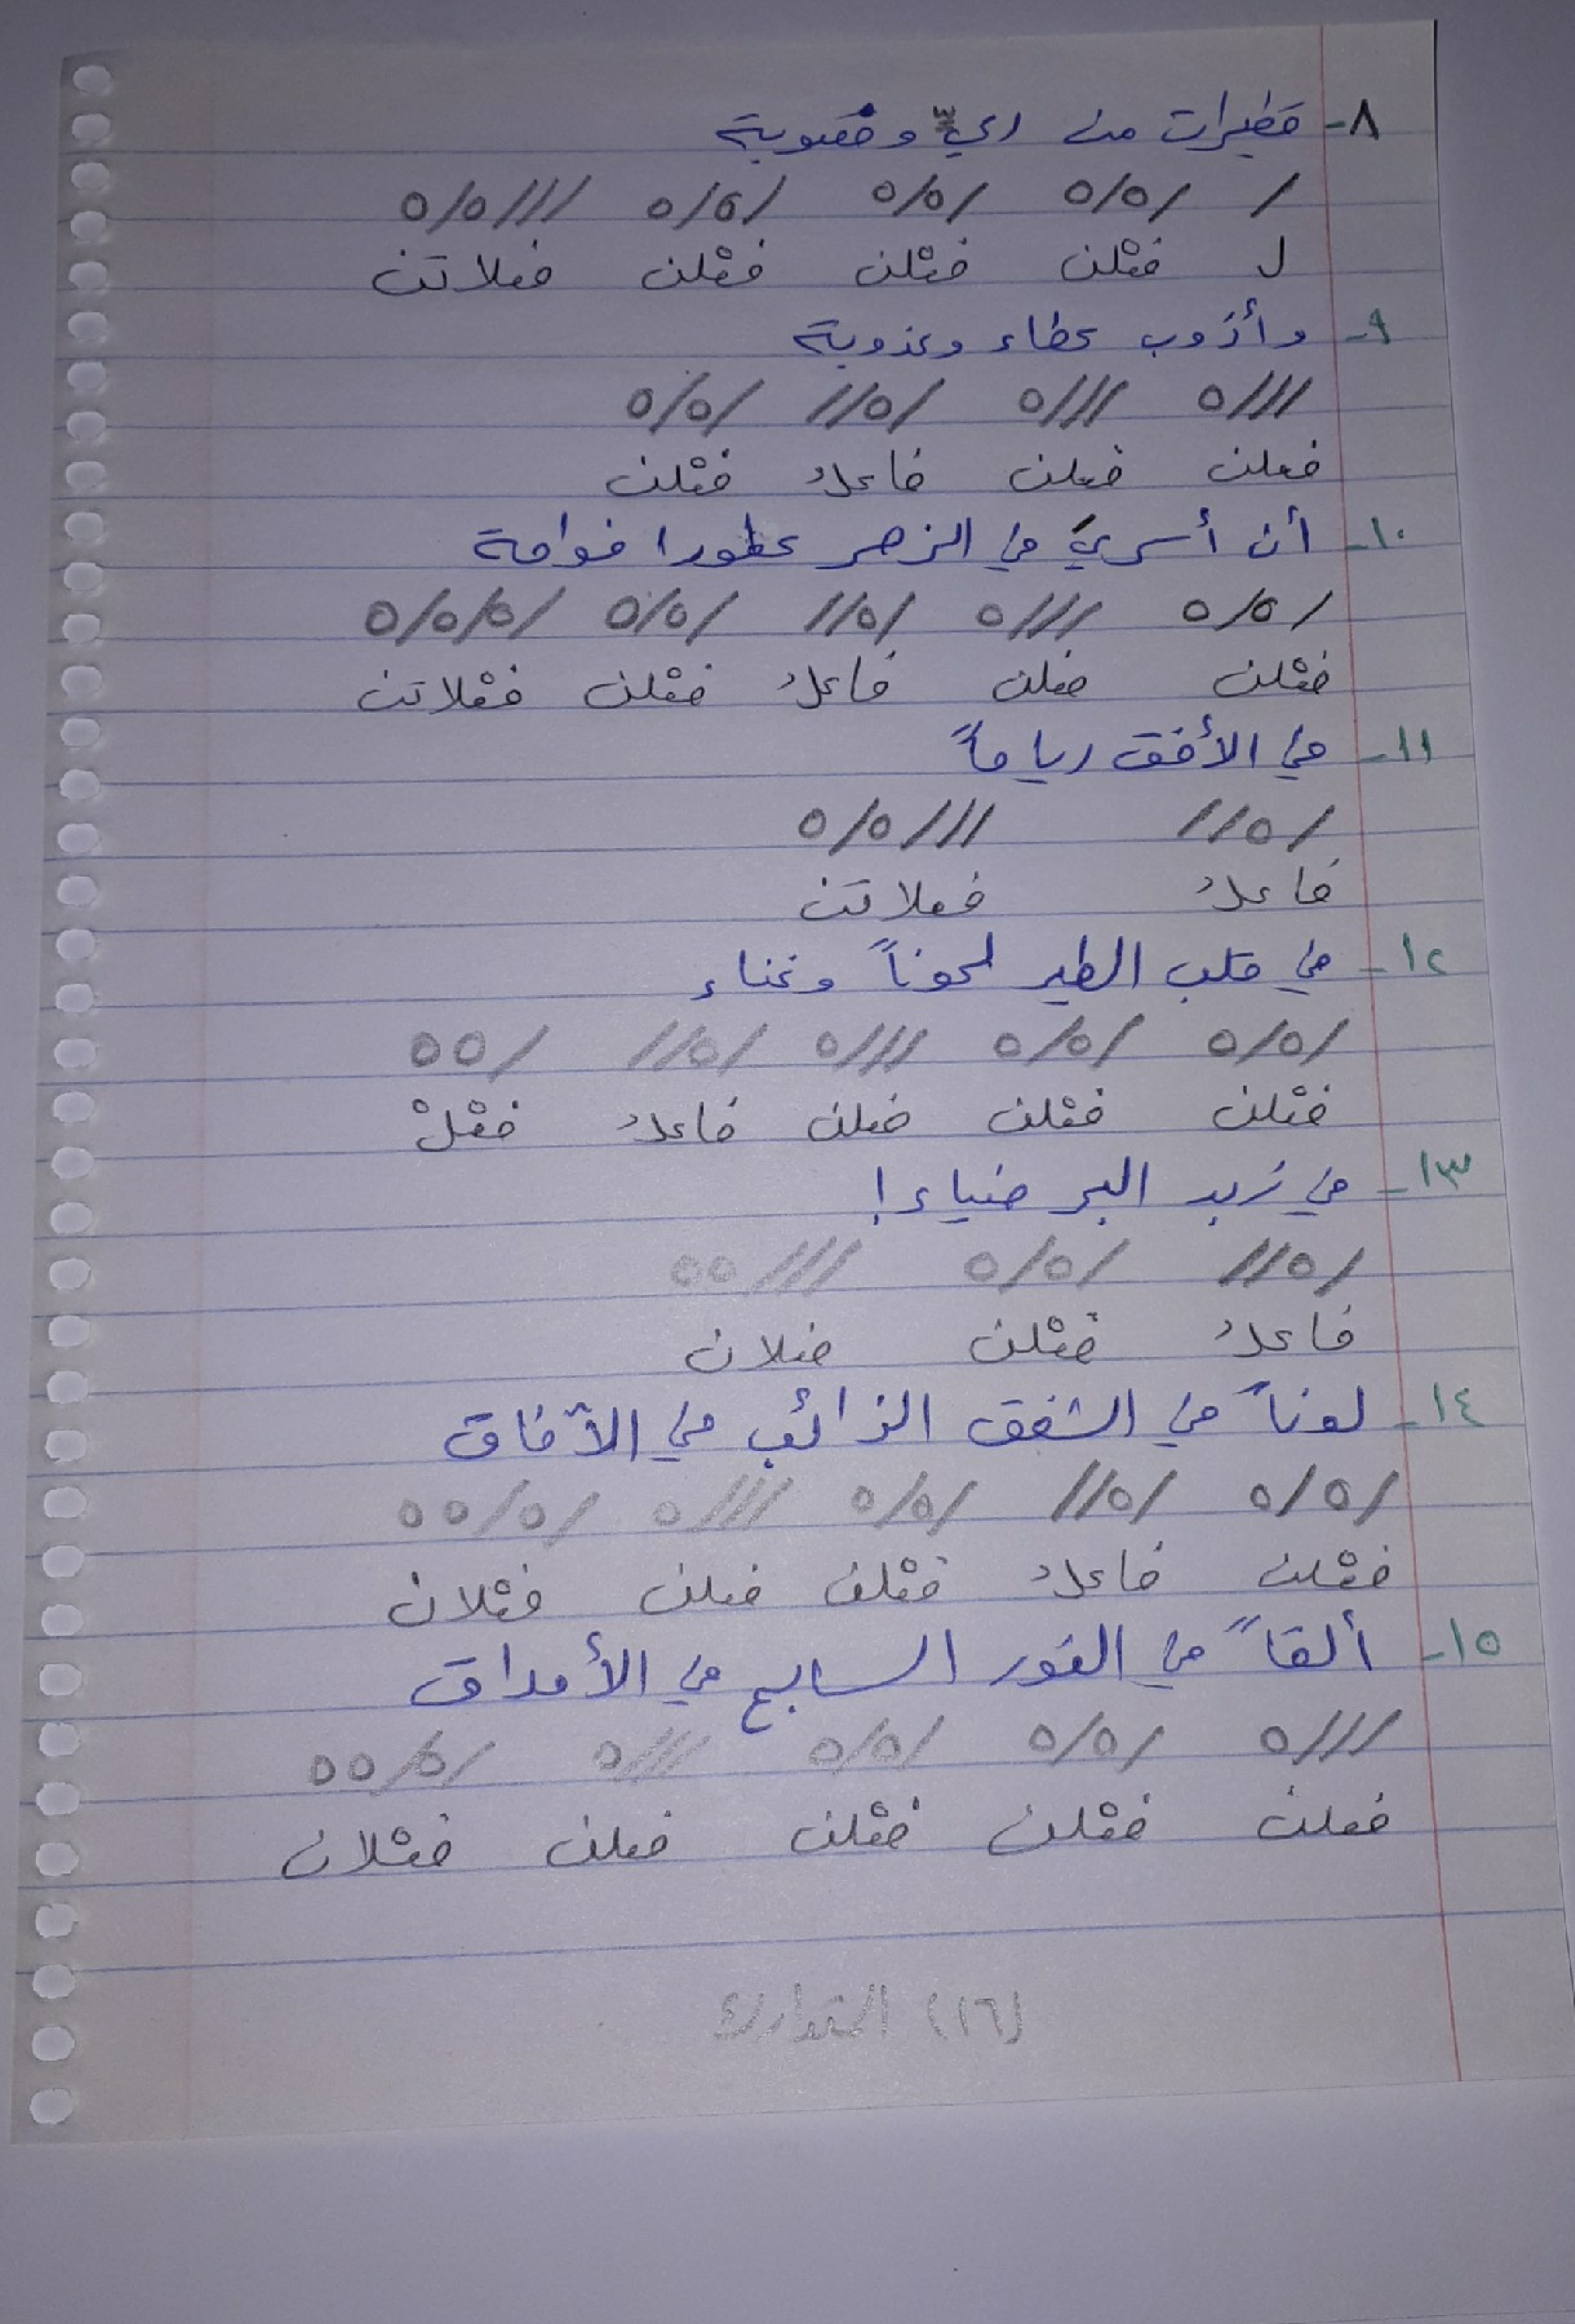 ٨- قطيرات من ريٍّ وخصوبة
/ /٥/٥ /٥/٥ /٥/٥ ///٥/٥
ل فعْلن فعْلن فعْلن فعلاتن
٩- وأذوب عطاء وعذوبة
///٥ ///٥ /٥// /٥/٥
فعلن فعلن فاعلُ فعْلن
١٠- أن أسريَ في الزهر عطورا فواحة
/٥/٥ ///٥ /٥// /٥/٥ /٥/٥/٥
فعْلن فعلن فاعلُ فعْلن فعْلاتن
١١- في الأفق رياحاً
/٥// ///٥/٥
فاعلُ فعلاتن
١٢- في قلب الطير لحوناً وغناء
/٥/٥ /٥/٥ ///٥ /٥// /٥٥
فعْلن فعْلن فعلن فاعلُ فعْلْ
١٣- في زبد البحر ضياء!
/٥// /٥/٥ ///٥٥
فاعلُ فعْلن فعلان
١٤- لوناً في الشفق الذائب في الآفاق
/٥/٥ /٥// /٥/٥ ///٥ /٥/٥٥
فعْلن فاعلُ فعْلن فعلن فعْلان
١٥- ألقاً في النور السابح في الأحداق
///٥ /٥/٥ /٥/٥ ///٥ /٥/٥٥
فعلن فعْلن فعْلن فعلن فعْلان
(١٦) المتدارك